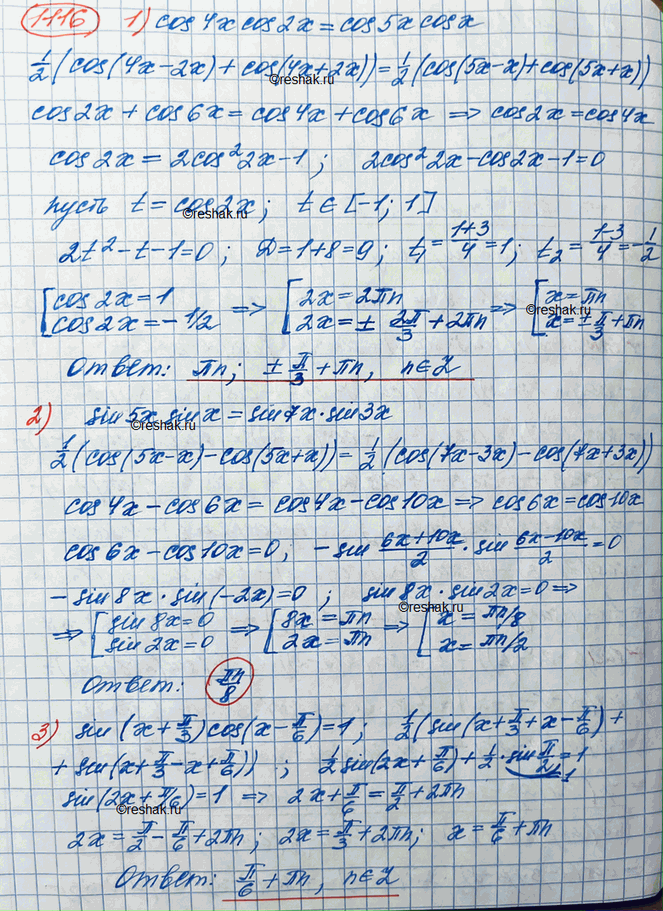 1116 1) cos 4x cos 2x = cos 5x cos x
1/2 (cos(4x-2x) + cos(4x+2x)) = 1/2 (cos(5x-x) + cos(5x+x))
©reshak.ru
cos 2x + cos 6x = cos 4x + cos 6x => cos 2x = cos 4x
cos 2x = 2cos² 2x - 1 ; 2cos² 2x - cos 2x - 1 = 0
пусть t = cos 2x ; t ∈ [-1; 1]
©reshak.ru
2t² - t - 1 = 0 ; D = 1+8 = 9 ; t₁ = (1+3)/4 = 1 ; t₂ = (1-3)/4 = -1/2
[cos 2x = 1 => [2x = 2πn => [x = πn
©reshak.ru
cos 2x = -1/2 2x = ± 2π/3 + 2πn x = ± π/3 + πn
Ответ: πn ; ± π/3 + πn, n∈Z
2) sin 5x sin x = sin 7x · sin 3x
©reshak.ru
1/2 (cos(5x-x) - cos(5x+x)) = 1/2 (cos(7x-3x) - cos(7x+3x))
cos 4x - cos 6x = cos 4x - cos 10x => cos 6x = cos 10x
cos 6x - cos 10x = 0 ; - sin (6x+10x)/2 · sin (6x-10x)/2 = 0
- sin 8x · sin(-2x) = 0 ; sin 8x · sin 2x = 0 =>
©reshak.ru
=> [sin 8x = 0 => [8x = πn => [x = πn/8
sin 2x = 0 2x = πn x = πn/2
Ответ: πn/8
3) sin (x + π/3) cos(x - π/6) = 1 ; 1/2 (sin(x + π/3 + x - π/6) +
+ sin(x + π/3 - x + π/6)) ; 1/2 sin(2x + π/6) + 1/2 · sin π/2 = 1
1
sin(2x + π/6) = 1 => 2x + π/6 = π/2 + 2πn
©reshak.ru
2x = π/2 - π/6 + 2πn ; 2x = π/3 + 2πn ; x = π/6 + πn
Ответ: π/6 + πn, n∈Z